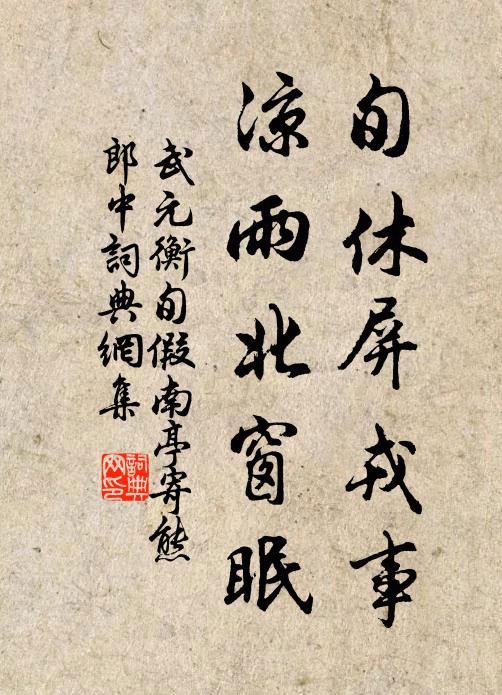 旬休屏戎事
凉雨北窗眠
武元衡旬假南亭寄熊
郎中詞典網集
詞典
网印